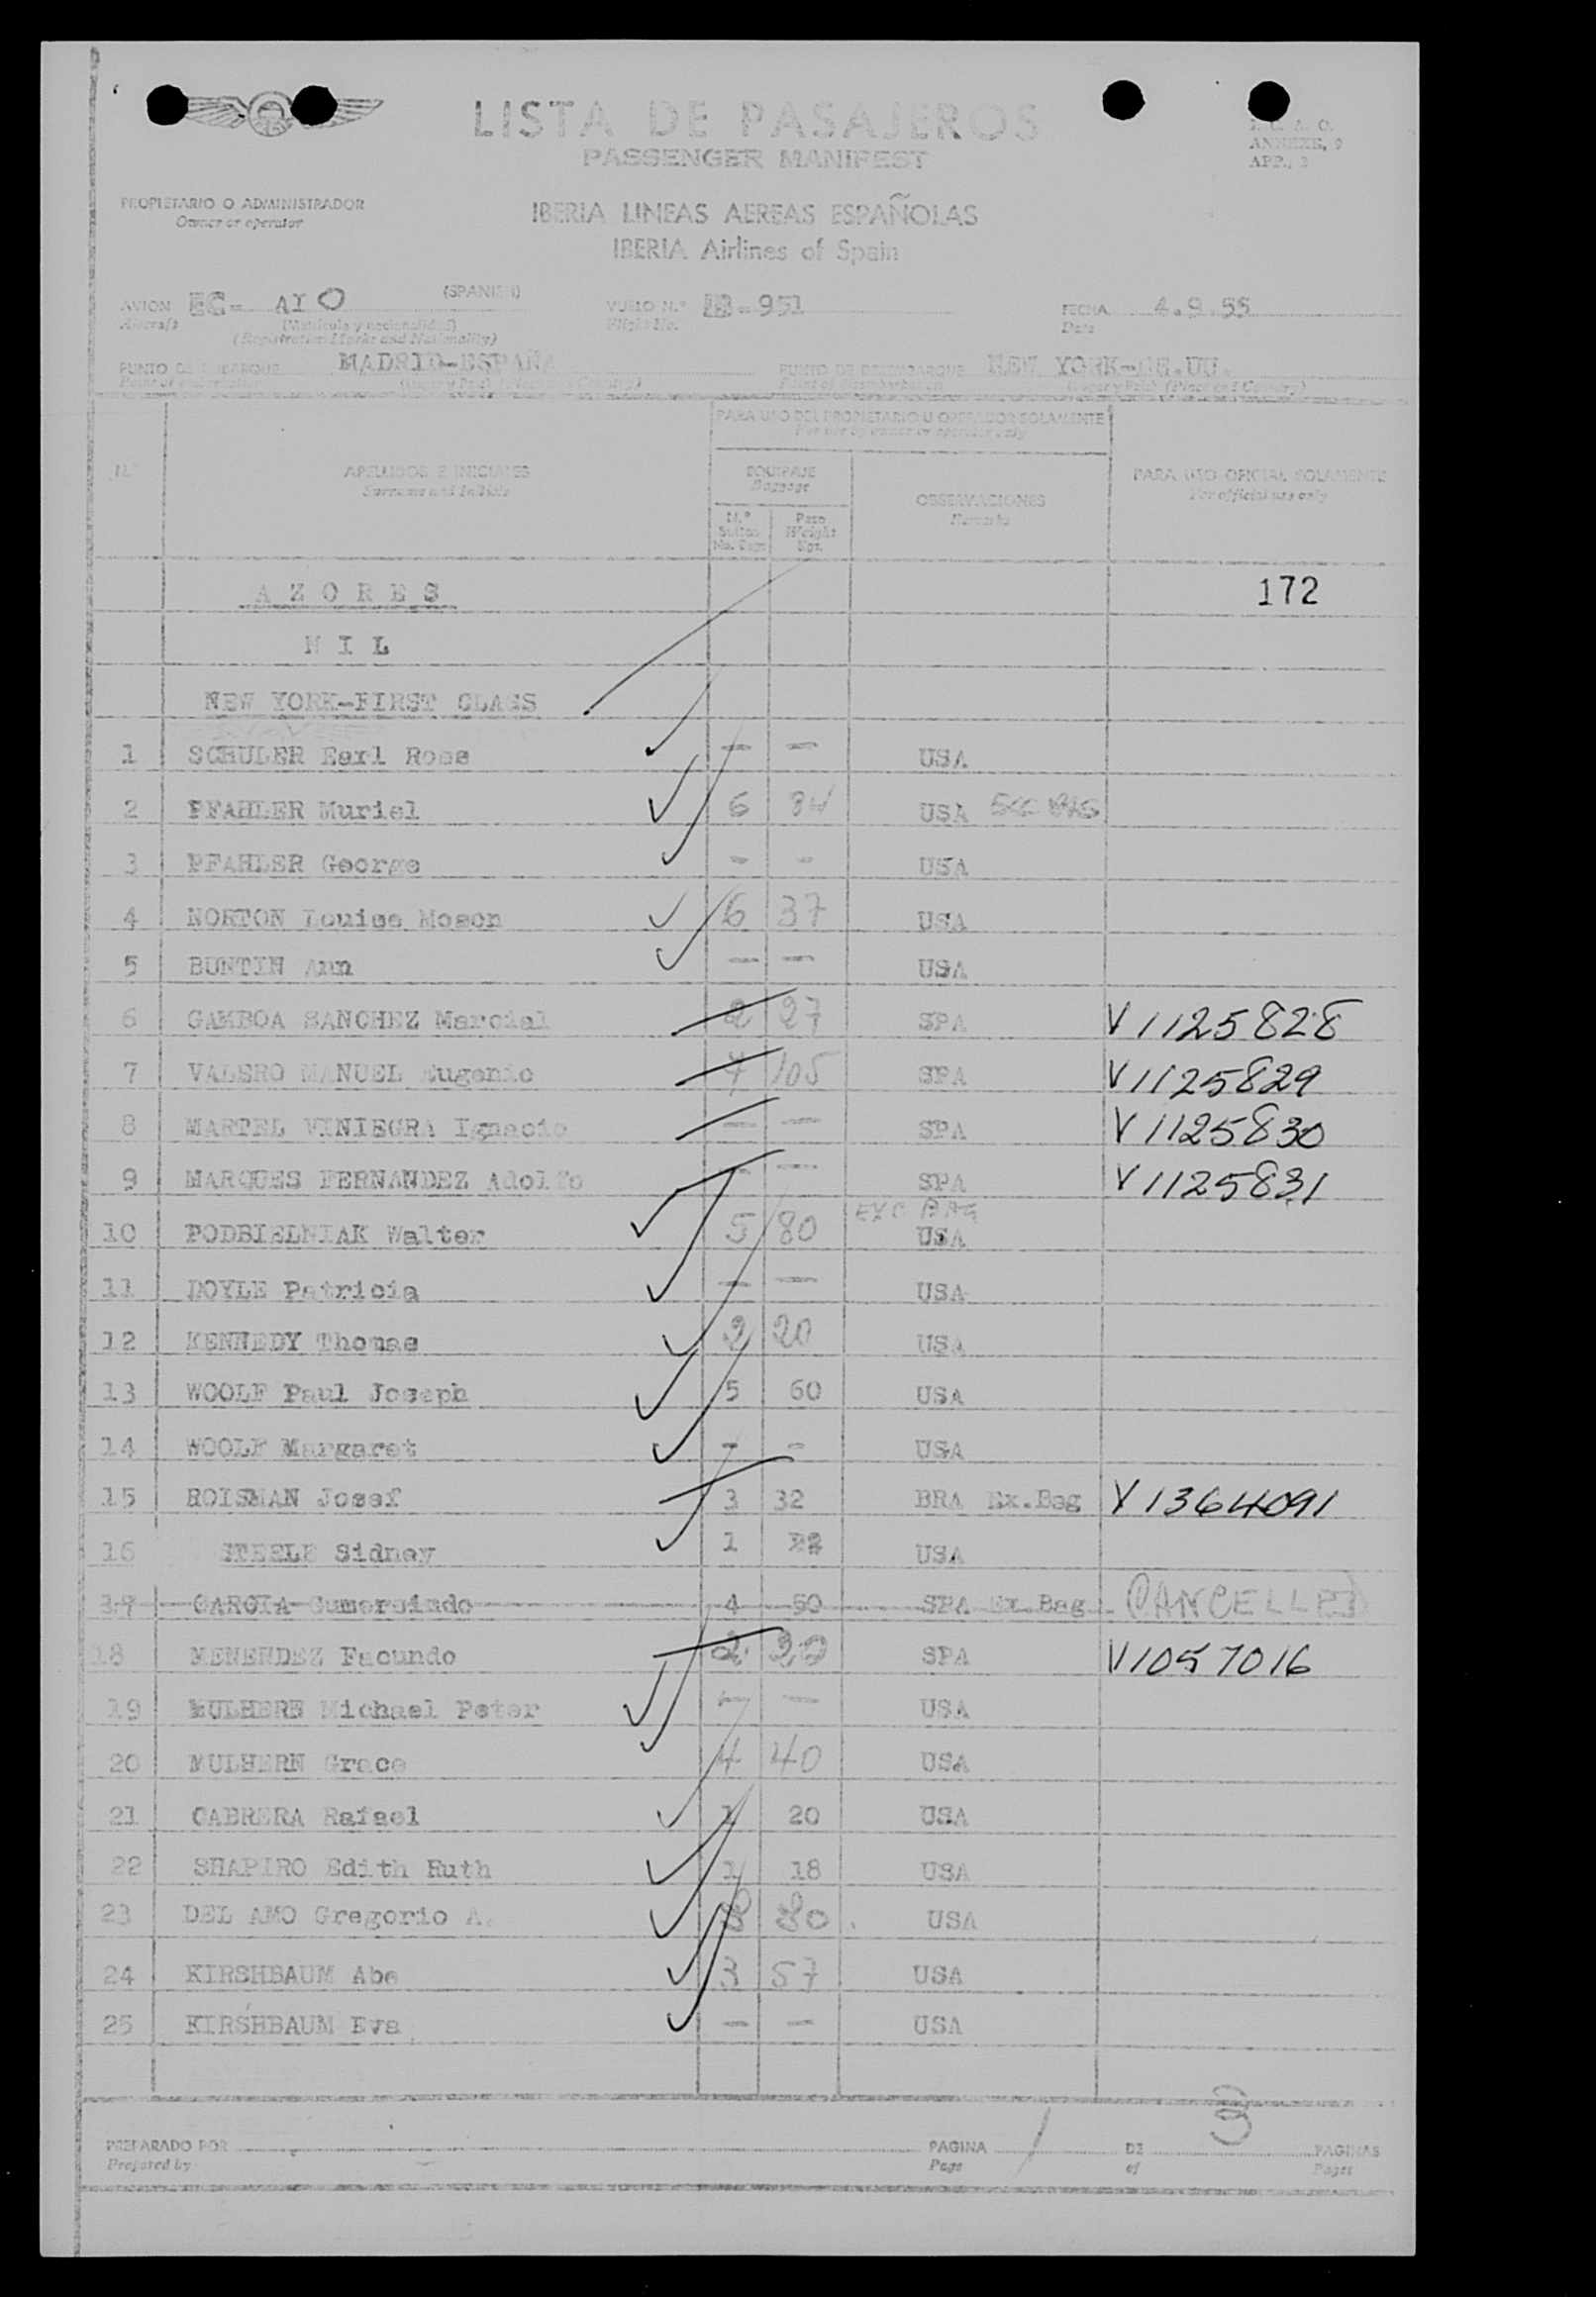 LISTA DE PASAJEROS
PASSENGER MANIFEST
I. C. A. O.
ANNEXE, 9
APP., 3
PROPIETARIO O ADMINISTRADOR
Owner or operator
IBERIA LINEAS AEREAS ESPAÑOLAS
IBERIA Airlines of Spain
AVION EC- AIO (SPANISH) VUELO N.º IB-951 FECHA 4.9.55
Aircraft (Matrícula y nacionalidad) Flight No. Date
(Registration Marks and Nationality)
PUNTO DE EMBARQUE MADRID-ESPAÑA PUNTO DE DESEMBARQUE NEW YORK-EE.UU.
Point of embarkation (Lugar y País) (Place and Country) Point of disembarkation (Lugar y País) (Place and Country)
PARA USO DEL PROPIETARIO U OPERADOR SOLAMENTE
For use by owner or operator only
N.º APELLIDOS E INICIALES EQUIPAJE OBSERVACIONES PARA USO OFICIAL SOLAMENTE
Surname and Initials Baggage Remarks For official use only
N.º Bultos Peso
Weight Kgs.
AZORES 172
NIL
NEW YORK-FIRST CLASS
1 SCHULER Earl Ross — — USA
2 PFAHLER Muriel 6 84 USA
3 PFAHLER George - - USA
4 NORTON Louise Moson 6 37 USA
5 BUNTIN Ann — — USA
6 GAMBOA SANCHEZ Marcial 2 27 SPA V1125828
7 VALERO MANUEL Eugenio 7 105 SPA V1125829
8 MARTEL VINIEGRA Ignacio — — SPA V1125830
9 MARQUES FERNANDEZ Adolfo - — SPA V1125831
10 PODBIELNIAK Walter 5 80 EXC BAG USA
11 DOYLE Patricia — — USA
12 KENNEDY Thomas 2 20 USA
13 WOOLF Paul Joseph 5 60 USA
14 WOOLF Margaret - - USA
15 ROISMAN Josef 3 32 BRA Ex.Bag V1364091
16 STEELE Sidney 1 22 USA
17 GARCIA Gumersindo 4 50 SPA Ex.Bag CANCELLED
18 MENENDEZ Facundo 2 20 SPA V1057016
19 MULHERN Michael Peter — — USA
20 MULHERN Grace 4 40 USA
21 CABRERA Rafael 1 20 USA
22 SHAPIRO Edith Ruth 1 18 USA
23 DEL AMO Gregorio A. 3 80 USA
24 KIRSHBAUM Abe 3 57 USA
25 KIRSHBAUM Eva — — USA
PREPARADO POR PAGINA 1 DE 3 PAGINAS
Prepared by Page of Pages